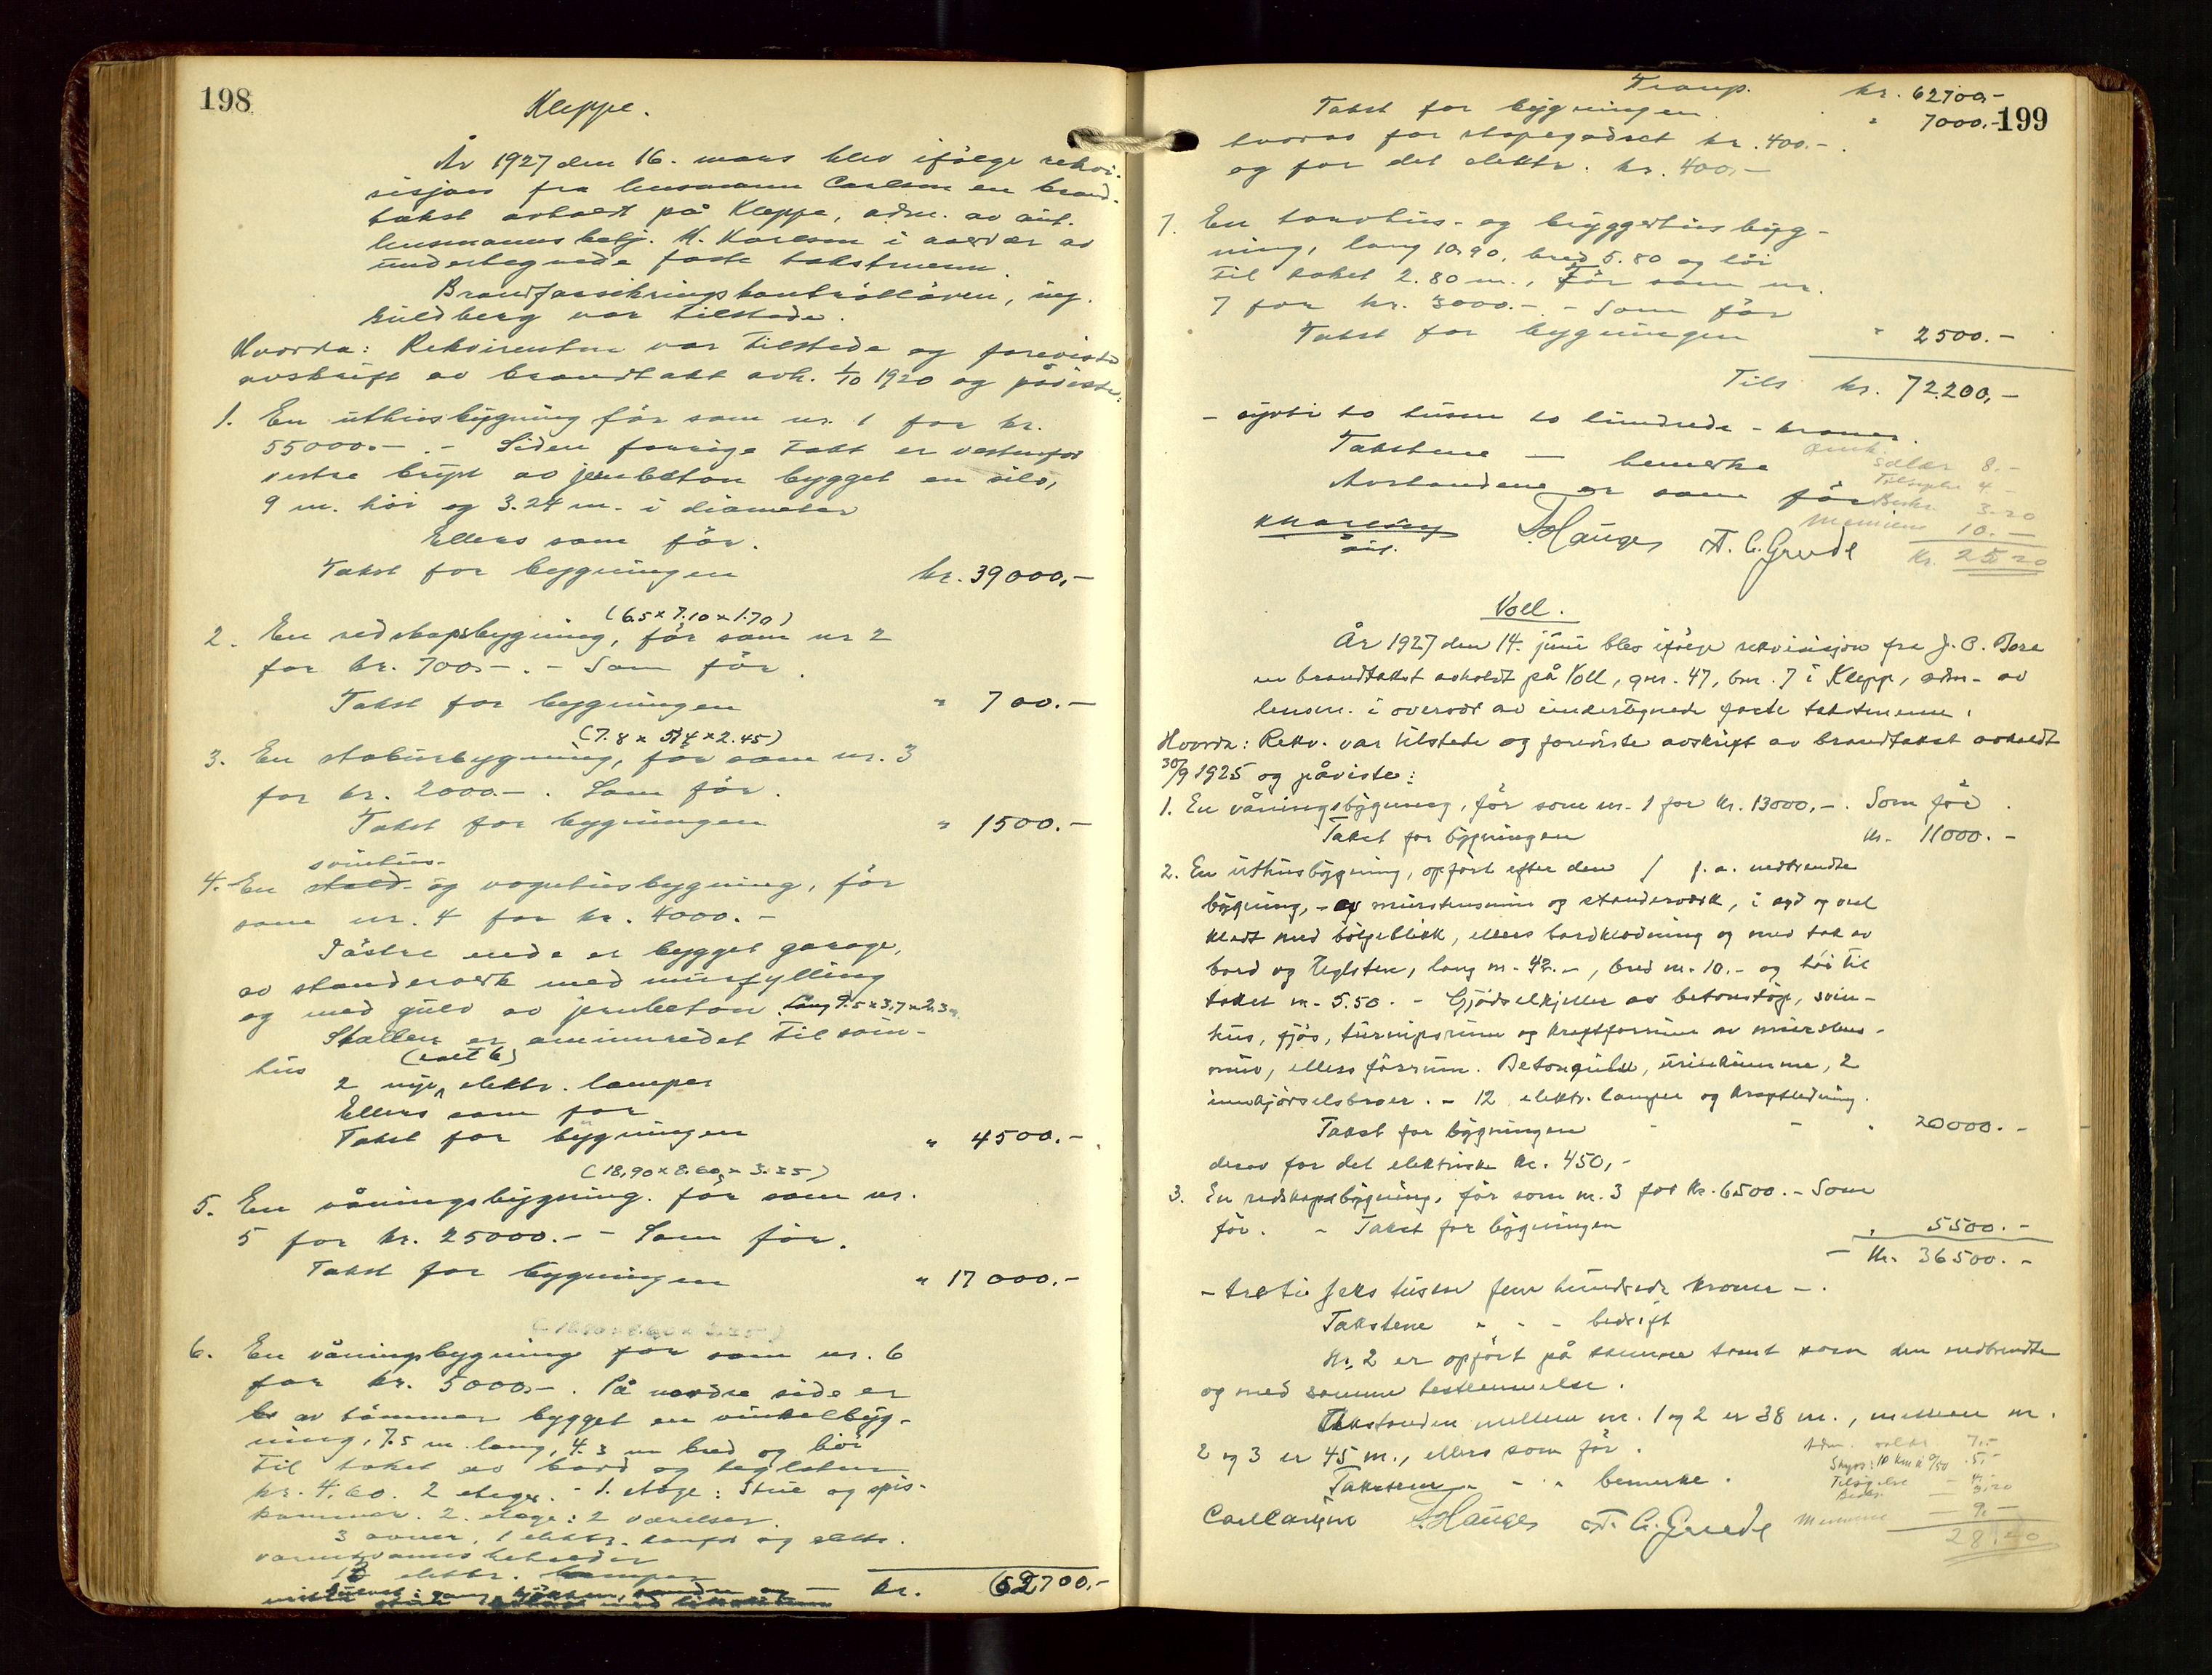 198
Kleppe.
År 1927 den 16. mars blev ifölge rekvi-
sisjon fra lensmann Carlsen en brand-
takst avholdt på Kleppe, adm. av aut.
lensmannsbetj. K. Karlsen i overvær av
undertegnede faste takstmenn.
Brandforsikringskontrollören, ing.
Guldberg var tilstede.
Hvorda: Rekvirenten var tilstede og foreviste
avskrift av brandtakt avh. 1/10 1920 og påviste:
1. En uthusbygning för som nr. 1 for kr.
55000.- . - Siden forrige takt er vestenfor
vestre bryst av jernbeton bygget en silo,
9 m. höi og 3.24 m. i diameter
Ellers som för.
Takst for bygningen kr. 39000,-
(6.5 x 7.10 x 1.70)
2. En redskapsbygning, för som nr 2
for kr. 700.- . - Som för.
Takst for bygningen " 700.-
(7.8 x 5.4 x 2.45)
3. En stabursbygning, för som nr. 3
for kr. 2000.- . Som för.
Takst for bygningen " 1500.-
svinhus-
4. En stald- og vognhusbygning, för
som nr. 4 for kr. 4000.-
I östre ende er bygget garage,
av standerverk med murfylling
og med gulv av jernbeton. lang 9.5 x 3.7 x 2.3 m.
Stallen er ominnredet til svin-
hus
(ialt 6)
2 nye elektr. lamper
Ellers som for
Takst for bygningen " 4500.-
(18,90 x 8.60 x 3.35)
5. En våningsbygning. för som nr.
5 for kr. 25000.- - Som för.
Takst for bygningen " 17000.-
6. En våningsbygning for som nr. 6
for kr. 5000.- . På nordre side er
av tömmer bygget en vinkelbyg-
ning, 7.5 m. lang, 4.3 m bred og höi
til taket av bord og teglsten
kr. 4.60. 2 etager. - 1. etage: Stue og spis-
kammer. 2. etage: 2 værelser.
3 ovner, 1 elektr. komfyr og elektr.
varmtvannsbeholder
elektr. lamper
kr. 62700,-
199
Transp. kr. 62700,-
Takst for bygningen " 7000.-
hvorav for støpegodset kr. 400.-
og for det elektr. kr. 400,-
7. En torvhus- og bryggerhusbyg-
ning, lang 10.90, bred 5.80 og höi
til taket 2.80 m., För som nr.
7 for kr. 3000.- . - Som för
Takst for bygningen " 2500.-
Tils kr. 72200,-
- sytti to tusen to hundrede - kroner.
Takstene — bemerke
Avstandene er som för
8.-
4.-
3.20
10.-
Kr. 25.20
Hauge A. G. Grude
Voll.
År 1927 den 14. juni blev ifölge rekvisisjon fra J. O. Tore
en brandtakst avholdt på Voll, gnr. 47, bnr. 7 i Klepp, adm. av
lensm. i overvær av undertegnede faste takstmenn.
Hvorda: Rekv. var tilstede og foreviste avskrift av brandtakst avholdt
30/9 1925 og påviste:
1. En våningsbygning, för som nr. 1 for kr. 13000,- . Som för.
Takst for bygningen kr. 11000.-
2. En uthusbygning, opfört efter den / f. a. nedbrendte
bygning, - av murstensmur og standerverk, i syd og vest
kledt med bölgeblikk, ellers bordklædning og med tak av
bord og teglsten, lang m. 42.-, bred m. 10.- og höi til
taket m. 5.50. - Gjödselkjeller av betonstöp, svin-
hus, fjös, turnipsrum og kraftforrum av murstens-
mur, ellers förrum. Betongulv, urinkumme, 2
innkjörselsbroer. - 12 elektr. lamper og kraftledning.
Takst for bygningen - - " 20000.-
derav for det elektriske kr. 450,-
3. En redskapsbygning, för som nr. 3 for kr. 6500.- Som
för. - Takst for bygningen " 5500.-
- Kr. 36500.-
- tretti seks tusen fem hundrede kroner - .
Takstene " - - bedrift
Nr. 2 er opfört på samme tomt som den nedbrendte
og med samme bestemmelse.
Avstanden mellem nr. 1 og 2 er 38 m., mellem nr.
2 og 3 er 45 m., ellers som för.
Takstene - " " bemerke.
7.-
Skyss: 10 km à 0/50 5.-
Tilsigelse 4.-
3.20
9.-
28.20
Carl Carlsen Hauge A. G. Grude